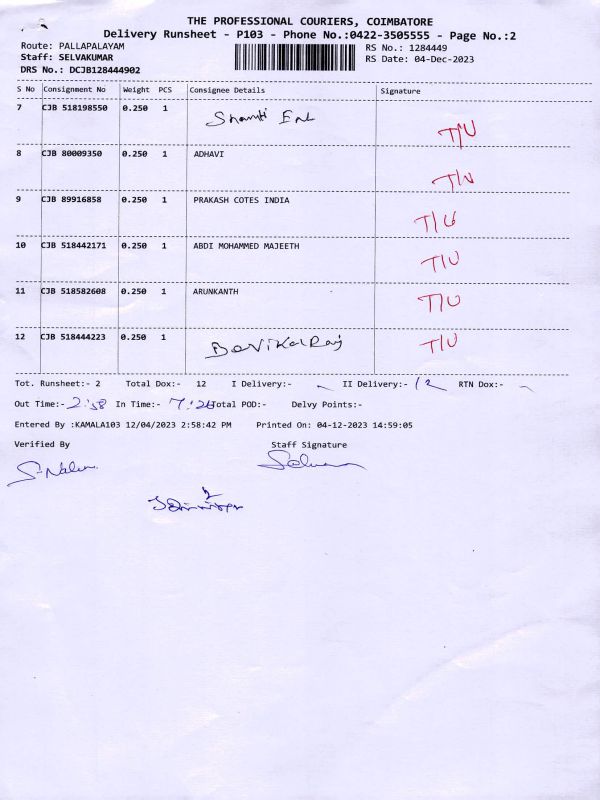 THE PROFESSIONAL COURIERS, COIMBATORE
Delivery Runsheet - P103 - Phone No.:0422-3505555 - Page No.:2
Route: PALLAPALAYAM RS No.: 1284449
Staff: SELVAKUMAR RS Date: 04-Dec-2023
DRS No.: DCJB128444902
S No Consignment No Weight PCS Consignee Details Signature
7 CJB 518198550 0.250 1
T/U
8 CJB 80009350 0.250 1 ADHAVI
T/U
9 CJB 89916858 0.250 1 PRAKASH COTES INDIA
T/U
10 CJB 518442171 0.250 1 ABDI MOHAMMED MAJEETH
T/U
11 CJB 518582608 0.250 1 ARUNKANTH
T/U
12 CJB 518444223 0.250 1
T/U
Tot. Runsheet:- 2 Total Dox:- 12 I Delivery:- II Delivery:- 12 RTN Dox:-
Out Time:- 2:58 In Time:- Total POD:- Delvy Points:-
Entered By :KAMALA103 12/04/2023 2:58:42 PM Printed On: 04-12-2023 14:59:05
Verified By Staff Signature